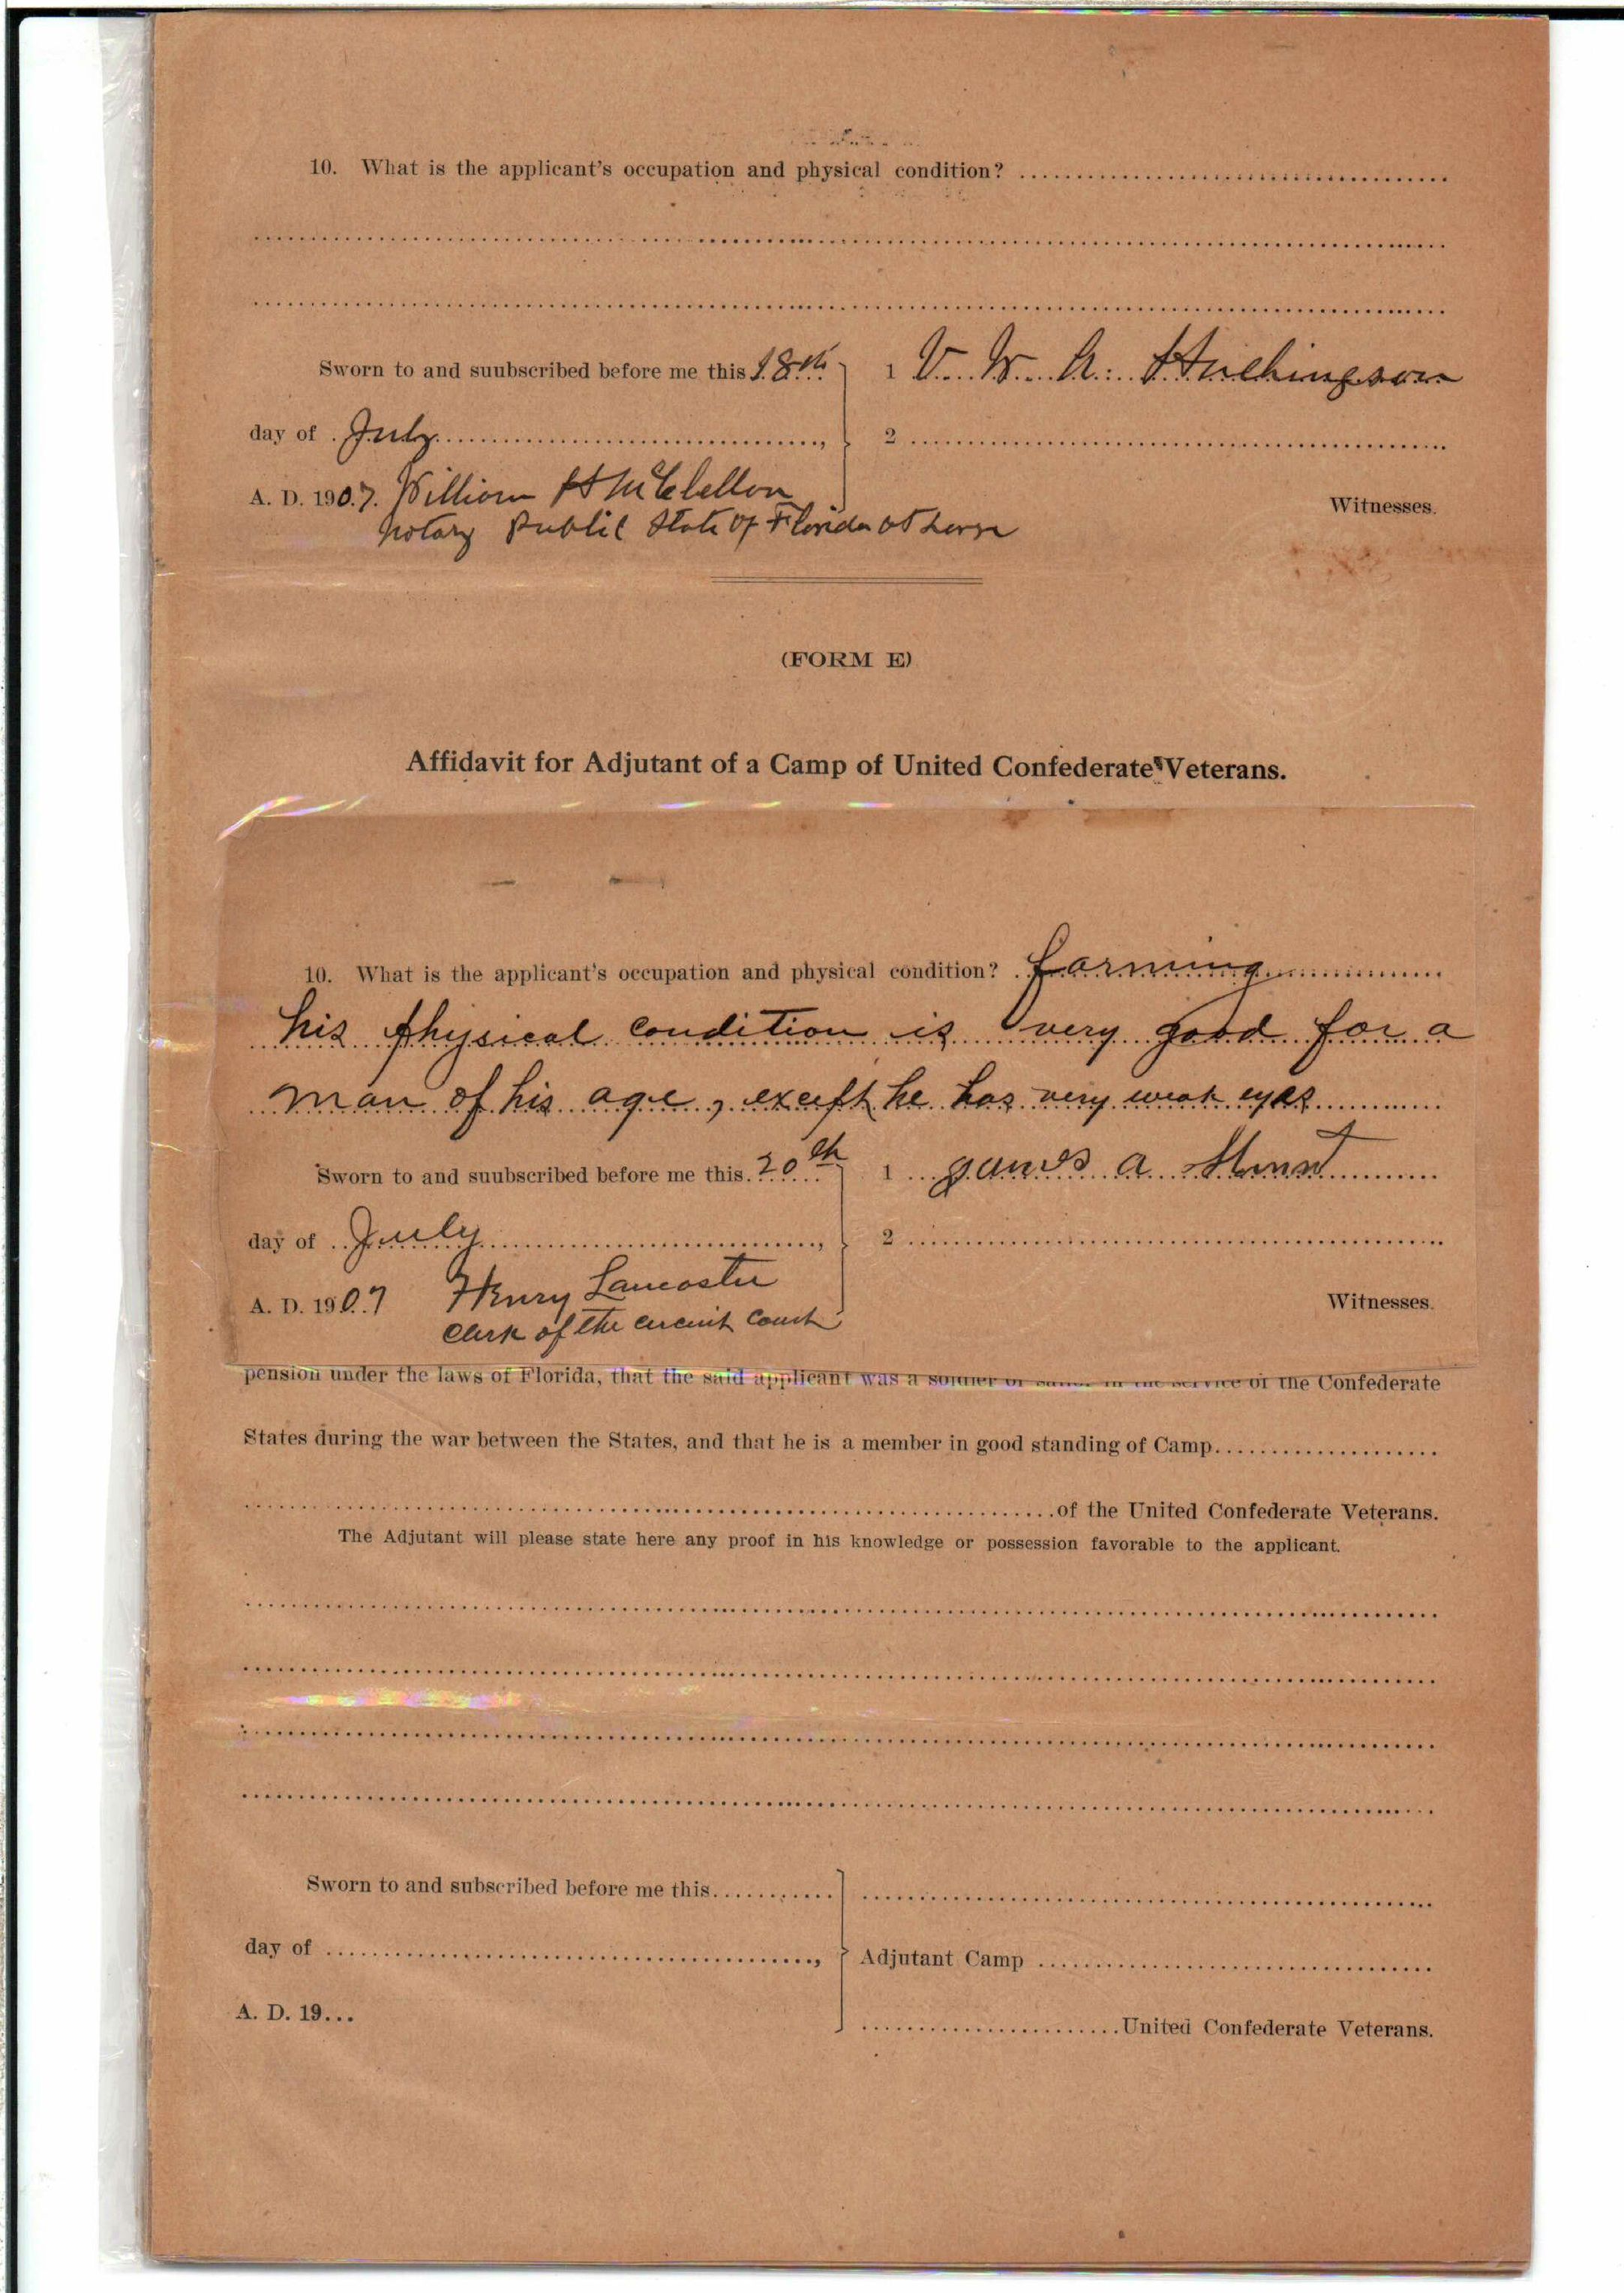 10. What is the applicant's occupation and physical condition?
Sworn to and suubscribed before me this 18th
1 V. W. A. Huchingson
day of July,
2
A. D. 1907. William H McClellon
Witnesses.
Notary Public State of Florida at Large
(FORM E)
Affidavit for Adjutant of a Camp of United Confederate Veterans.
10. What is the applicant's occupation and physical condition? farming
his physical condition is very good for a
man of his age, except he has very weak eyes
Sworn to and suubscribed before me this 20th
1 James A
day of July,
2
A. D. 1907 Henry Lancaster
Witnesses.
Clerk of the circuit Court
pension under the laws of Florida, that the said applicant was a soldier or sailor in the service of the Confederate
States during the war between the States, and that he is a member in good standing of Camp
of the United Confederate Veterans.
The Adjutant will please state here any proof in his knowledge or possession favorable to the applicant.
Sworn to and subscribed before me this
day of ,
Adjutant Camp
A. D. 19...
United Confederate Veterans.